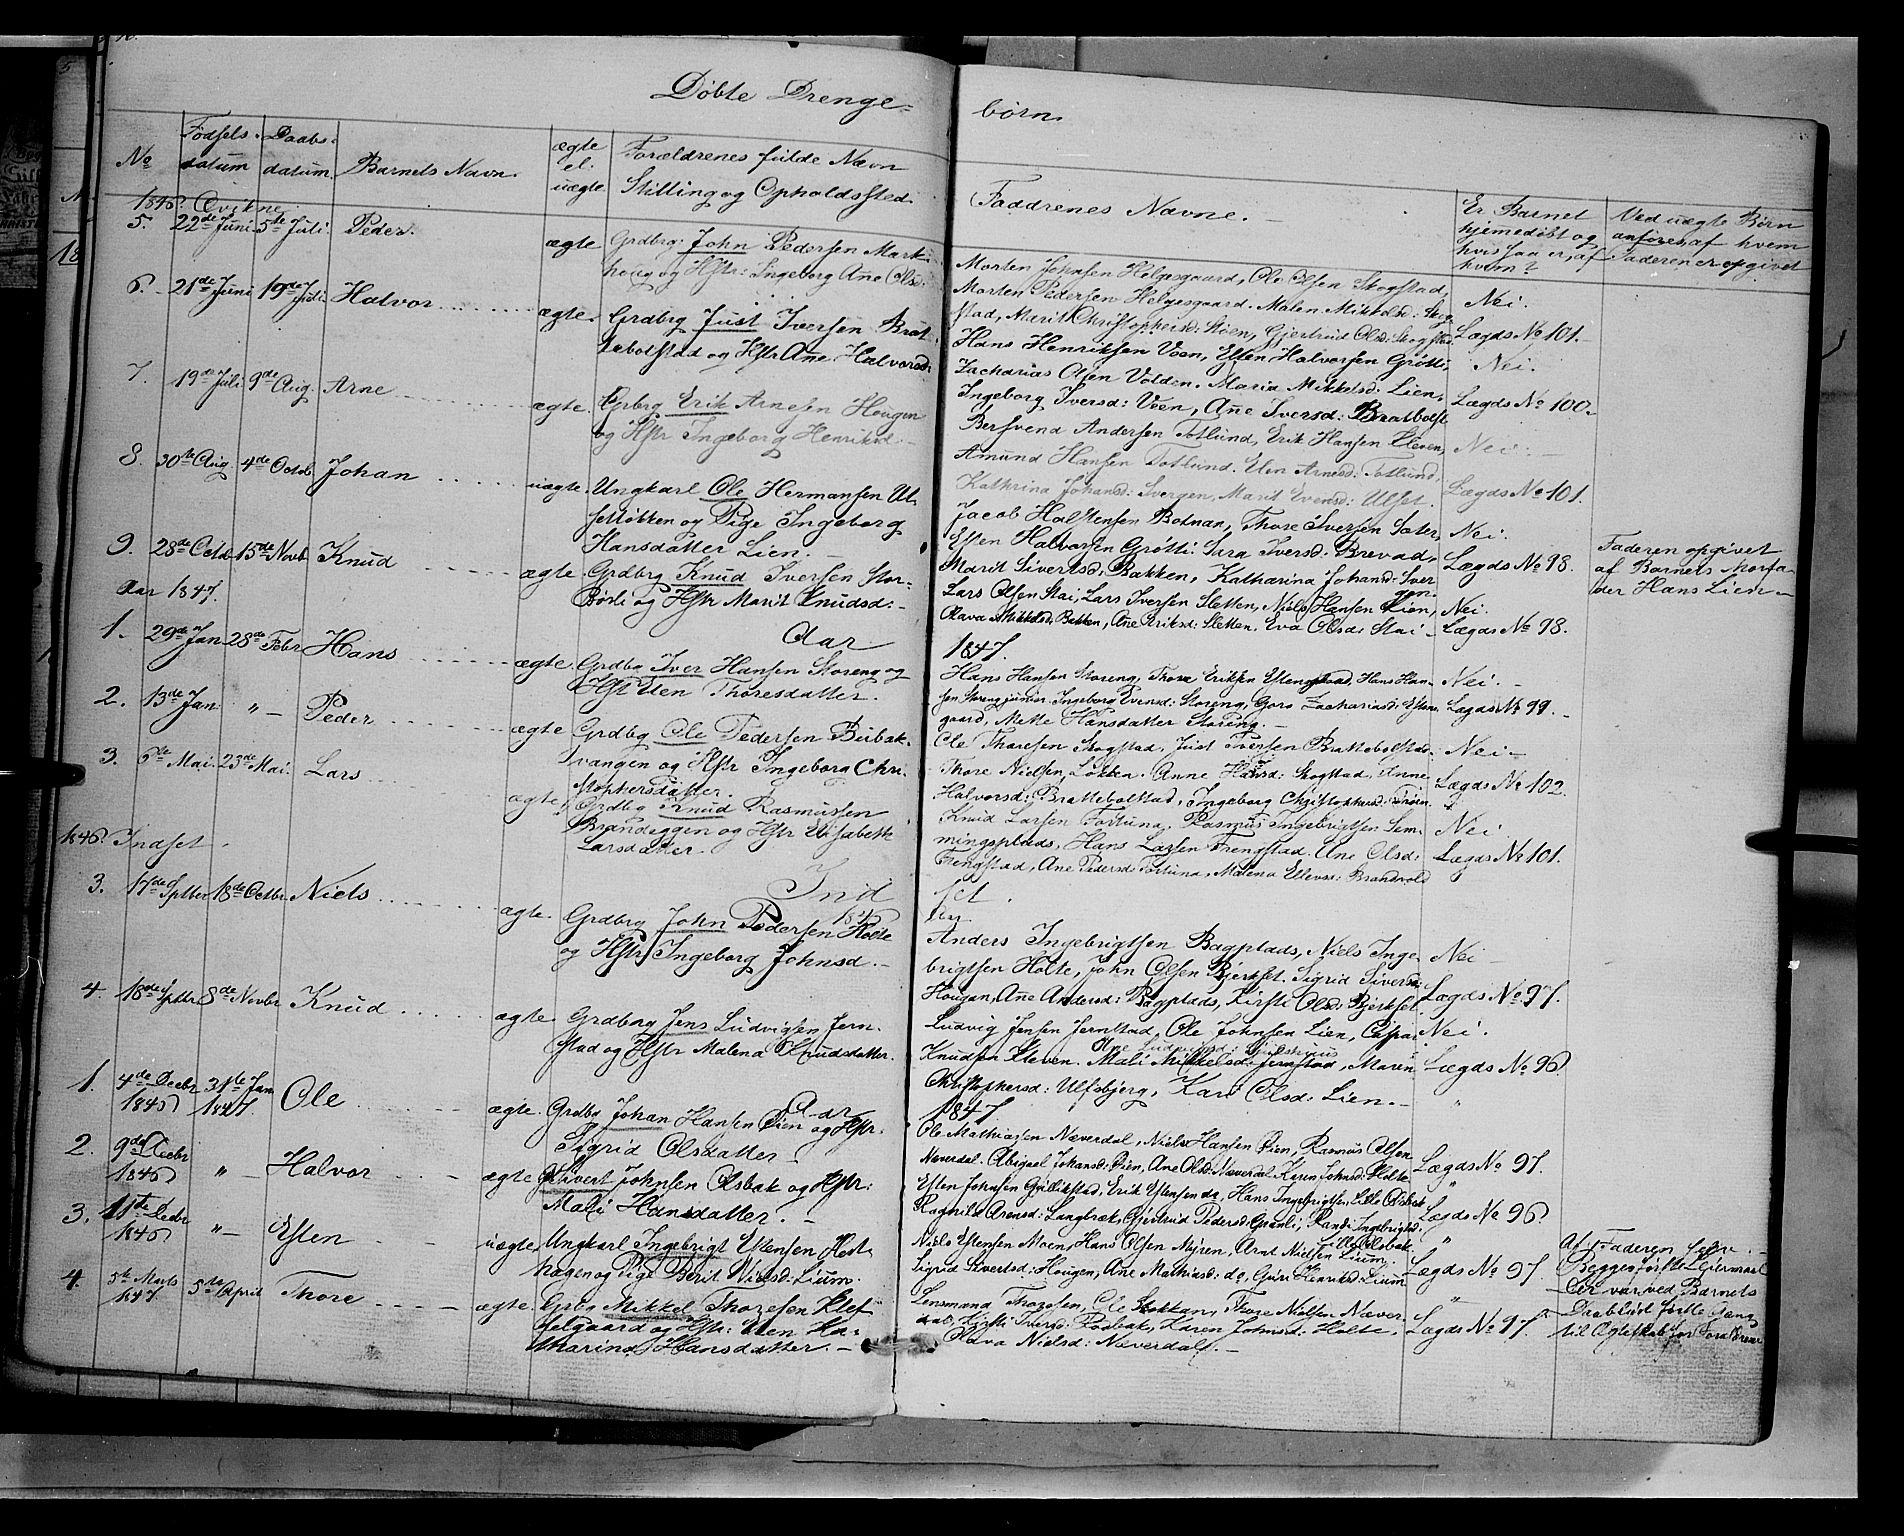 Døbte Drenge-
børn.
No
Fødsels-
datum
Daabs-
datum
Barnets Navn.
ægte
el.
uægte
Forældrenes fulde Navn
Stilling og Opholdssted
Faddrenes Navne.
Er Barnet
hjemedøbt og
hvis saa er, af
hvem?
Ved uægte Børn
anføres af hvem
Faderen er opgivet
1846. Qvikne
5. 22de Juni 5te Juli Peder. ægte
Grdbrg: John Pedersen
houg og Hstr: Ingeborg Ane Olsd:
Morten Johnsen Helgesgaard, Ole Olsen Skogstad,
Morten Pedersen Helgesgaard. Malen Mikkelsd:
stad, Marit Christophersd: Støen, Gjertrud Olsd:
Nei.
Lægds No 101.
6. 21de Juni 19de Juli Halvor ægte
Grdbrg Just Iversen Brat-
tebolstad og Hstr Ane Halvorsd:
Hans Henriksen Veen, Esten Halvorsen Grøtti,
Zacharias Olsen Volden. Maria Mikkelsd: Lien,
Ingeborg Iversd: Veen, Ane Iversd: Bratbolst
Nei.
Lægds No 100.
7. 19de Juli 9de Aug. Arne ægte
Grbrg Erik Arnesen Hougen
og Hstr Ingeborg Henriksd.
Bersvend Andersen Totlund, Erik Hansen Kleven,
Amund Hansen Totlund. Elen Arnesd: Totlund,
Kathrina Johansd: Svergen, Marit Evensd: Ulset.
Nei.
Lægds No 101.
8. 30te Aug. 4de Octob. Johan uægte
Ungkarl Ole Hermansen Ul-
setløkken og Pige Ingeborg
Hansdatter Lien.
Jacob Halstensen Botnan, Thore Iversen Sæter,
Esten Halvorsen Grøtti. Sara Iversd: Brevad,
Marit Siversd. Bakken, Katharina Johansd: Sver
gen.
Nei.
Lægds No 98.
Faderen opgivet
af Barnets Morfa-
der Hans Lien
9. 28de Octob 15de Novb Knud ægte
Grdbrg Knud Iversen Stor-
Børli og Hstr Marit Knudsd:
Lars Olsen Stai, Lars Iversen Sletten, Niels Hansen Lien,
Rava Mikkelsd. Bakken, Ane Eriksd: Sletten. Eva Olsd: Stai
Nei.
Lægds No 98.
Aar 1847.
Aar
1847.
1. 29de Jan 28de Febr Hans ægte
Grdbg Iver Hansen Storeng og
Hstr Elen Thoresdatter.
Hans Hansen Storeng, Thore Eriksen Estensgaard. Hans Han-
sen Storeng junior. Ingeborg Evensd: Storeng, Goro Zachariasd: Estens
gaard, Mette Hansdatter Storeng.
Nei.
Lægds No 99.
2. 13de Jan " Peder ægte
Grdbg Ole Pedersen Bubak-
svangen og Hstr Ingeborg Chri-
stophersdatter.
Ole Thoresen Skogstad, Just Iversen Brattebolstad.
Thore Nielsen Løkken. Anne Hansd: Skogstad, Anne
Halvorsd: Brattebolstad, Ingeborg Christophersd:
Nei
Lægds No 102.
3. 6te Mai. 23de Mai. Lars ægte
Grdbg Knud Rasmussen
Brandeggen og Hstr Elisabeth
Larsdatter.
Knud Larsen Fortuna, Rasmus Ingebrigtsen Sem-
mingsplads, Hans Larsen Frengstad. Ane Olsd:
Frengstad, Ane Pedersd Fortuna, Malena Ellevsd: Brandvold
Nei
Lægds No 101.
1846. Indset
Ind
set.
1846
3. 17de Sptber 18de Octbr Niels ægte
Grdbrg John Pedersen Holte
og Hstr Ingeborg Johnsd.
Anders Ingebrigtsen Bagplads, Niels Inge-
brigtsen Holte, John Olsen Bjerkset. Sigrid Siversd:
Hougan, Ane Andersd: Bagplads, Kirsti Olsd: Bjerkset.
Nei
Lægds No 97.
4. 18de Sptbr 8de Novbr Knud ægte
Grdbrg Jens Ludvigsen Jern-
stad og Hstr Malena Knudsdatter.
Ludvig Jensen Jernstad, Ole Johnsen Lien, Caspa
Knudsen Kleven. Mali Mikkelsd: Jernstad, Maren
Christophersd: Ulfsbjerg, Kari Olsd: Lien.
Nei.
Lægds No 96.
Aar
1847
1. 4de Decbr 1846 31te Jan 1847. Ole ægte.
Grdbg Johan Hansen Øien og Hstr:
Sigrid Olsdatter
Ole Mathiassen Næverdal, Niels Hansen Øien, Rasmus Olsen
Næverdal. Abigael Johansd: Øien, Ane Olsd: Næverdal. Karen Johnsd: Holte
"
Lægds No 97.
2. 9de Decbr 1846 " Halvor ægte
Sivert Johnsen Olsbak og Hstr:
Mali Hansdatter.
Esten Johnsen Gullikstad, Erik Estensen do, Hans Ingebrigtsen Lille Olsbak
Ragnild Arensd: Langbræk, Gjertrud Pedersd: Grønli, Randi Ingebrigtsd:
Lille Olsbak.
"
Lægds No 96
3. 11te Decbr 1846 " Esten uægte
Ungkarl Ingebrigt Estensen Hest-
hagen og Pige Berit Nielsd: Lium.
Niels Estensen Moen, Hans Olsen Myren, Arnt Nielsen Lium.
Sigrid Sivertsd: Hougen, Ane Mathiasd: do, Guru Henriksd: Lium
"
Lægds No 97.
Af Faderen selv.
Begges første Leiermaal
Der var ved Barnets
Daab lyst første Gang
til Ægteskab for Forældrene
4. 5te Marts 1847 5te April Thore ægte
Grbg Mikkel Thoresen Klef-
salgaard og Hstr: Elen Ka-
tharina Hansdatter.
Lensmand Thoresen, Ole Stokkan, Thore Nielsen Næver-
dal, Kirsti Iversd: Rødbak, Karen Johnsd: Holte,
Rava Nielsd: Næverdal.
"
Lægds No 97.